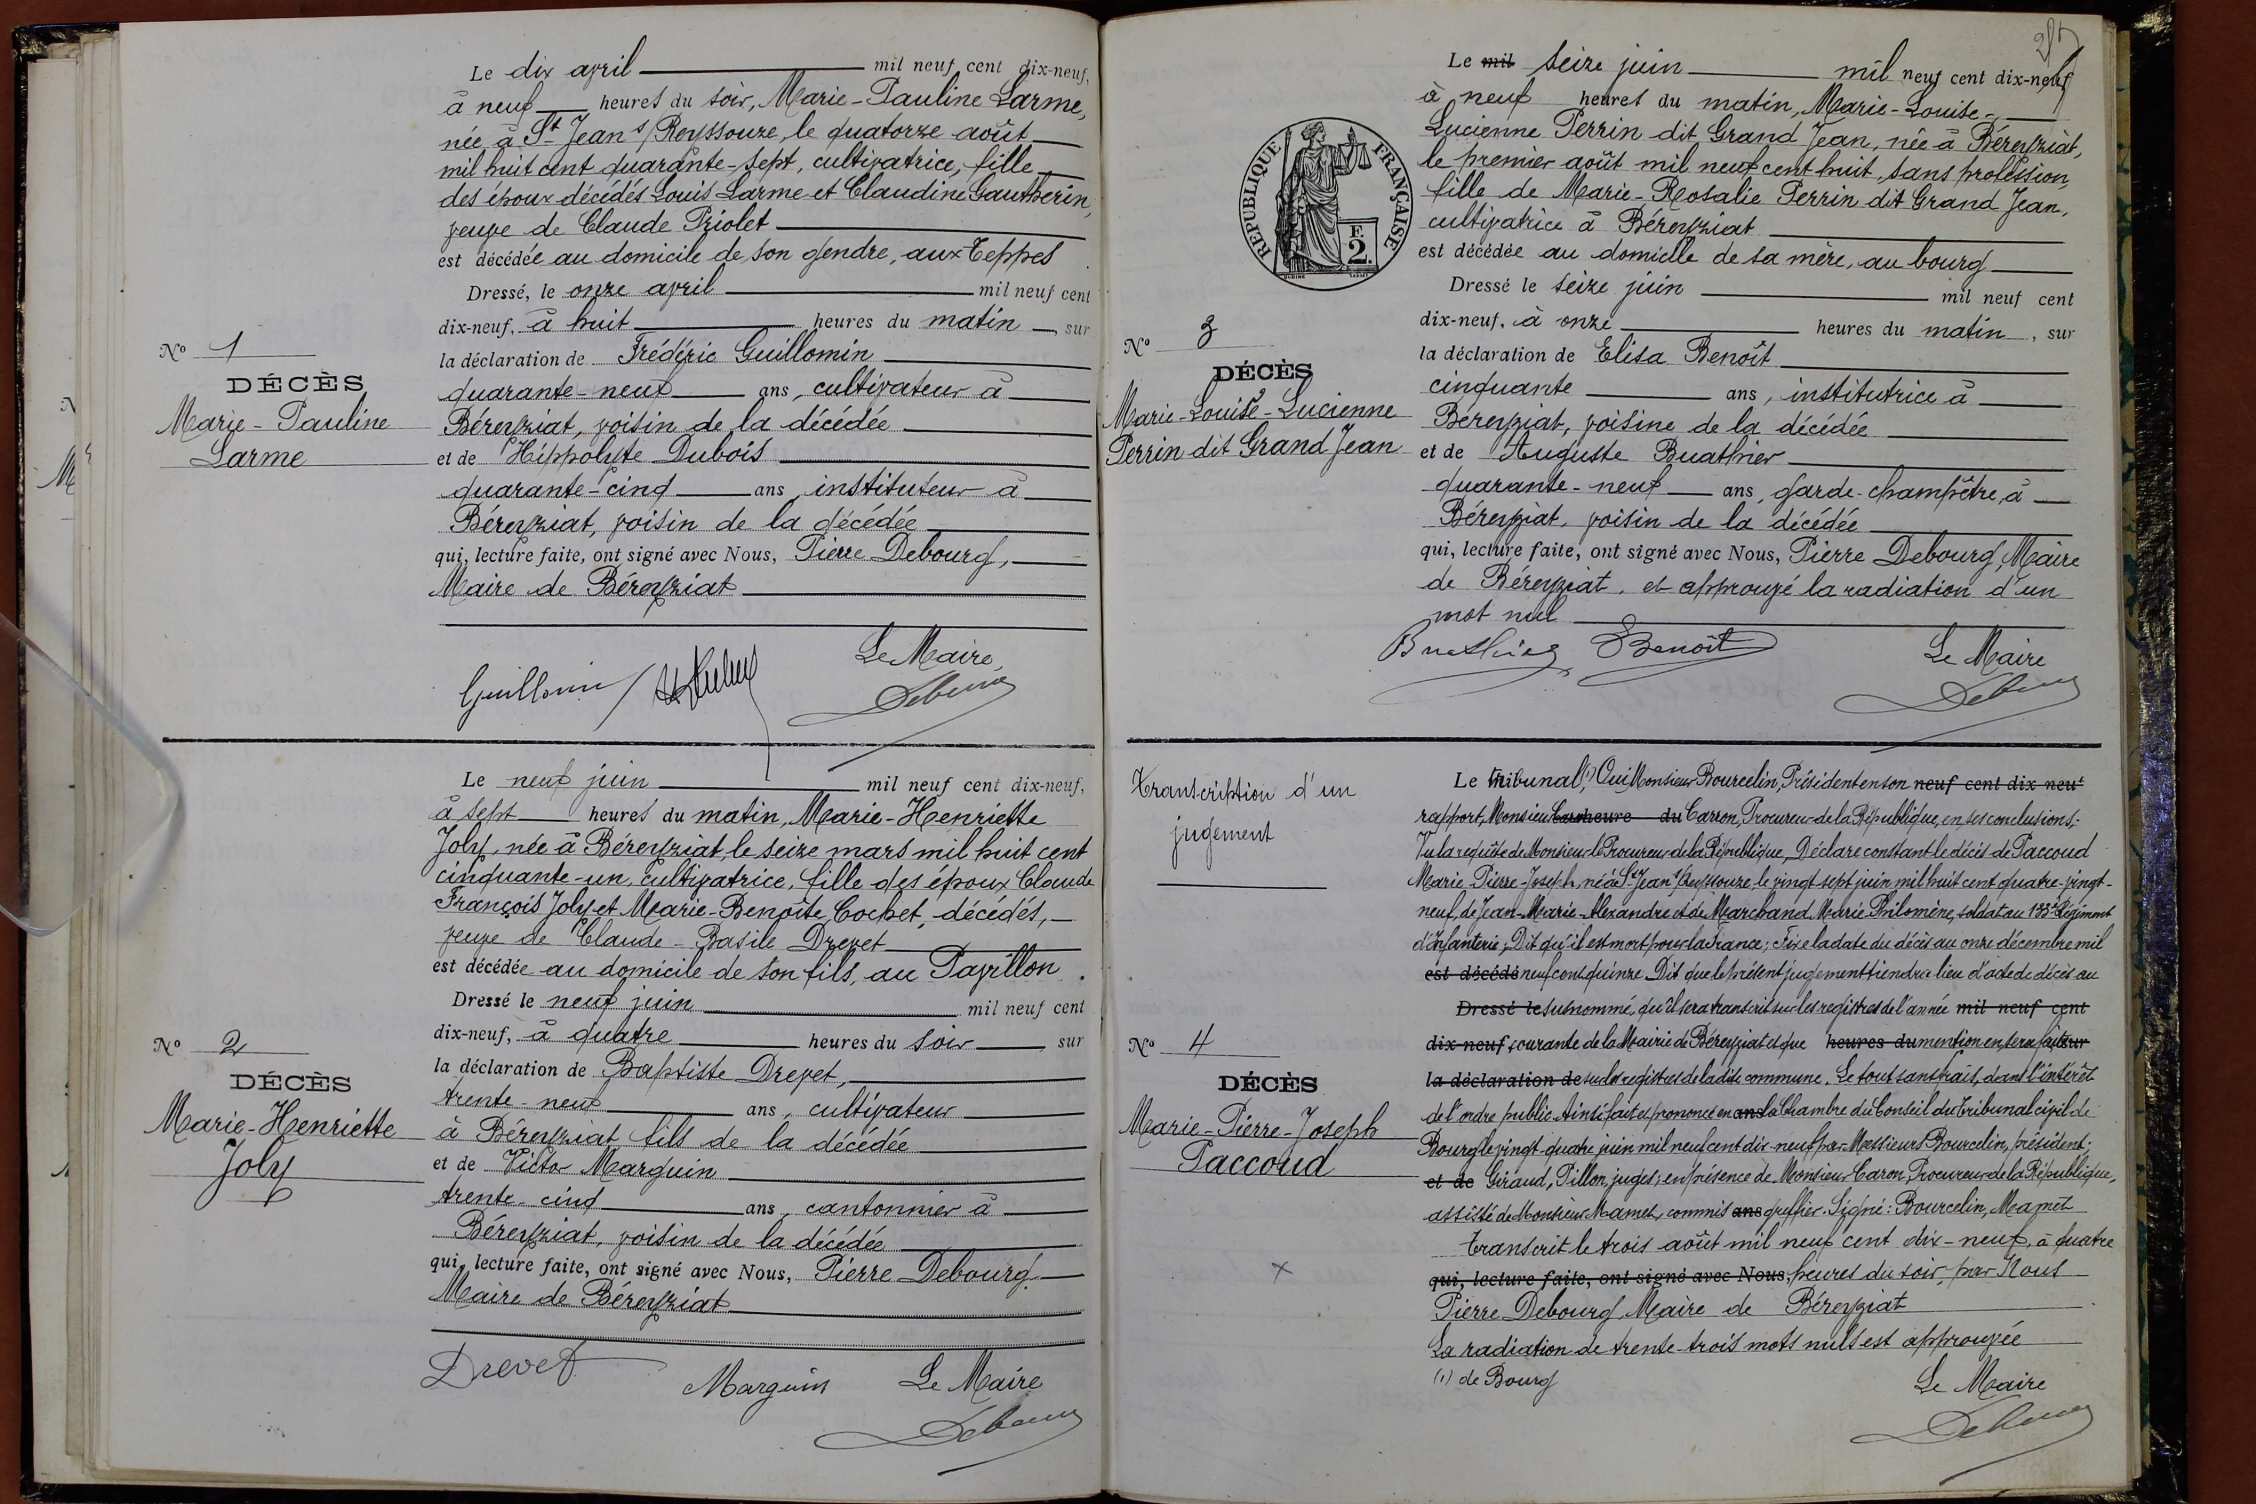 Le dix avril mil neuf cent dix-neuf,
à neuf heures du soir, Marie-Pauline Larme,
née à St Jean s/Reyssouze, le quatorze août
mil huit cent quarante-sept, cultivatrice, fille
des époux décédés Louis Larme et Claudine Gautherin,
veuve de Claude Priolet
est décédée au domicile de son gendre, aux Teppes
Dressé, le onze avril mil neuf cent
dix-neuf, à huit heures du matin, sur
la déclaration de Frédéric Guillomin
quarante-neuf ans, cultivateur à
Béreyziat, voisin de la décédée
et de Hippolyte Dubois
quarante-cinq ans, instituteur à
Béreyziat, voisin de la décédée
qui, lecture faite, ont signé avec Nous, Pierre Debourg,
Maire de Béreyziat
Le Maire,
Guillomin
Debourg
No 1
DÉCÈS
Marie-Pauline
Larme
Le neuf juin mil neuf cent dix-neuf,
à sept heures du matin, Marie-Henriette
Joly, née à Béreyziat, le seize mars mil huit cent
cinquante-un, cultivatrice, fille des époux Claude
François Joly et Marie-Benoîte Cochet, décédés,
veuve de Claude-Basile Drevet
est décédée au domicile de son fils, au Pavillon.
Dressé le neuf juin mil neuf cent
dix-neuf, à quatre heures du soir, sur
la déclaration de Baptiste Drevet,
trente-neuf ans, cultivateur
à Béreyziat, fils de la décédée
et de Victor Marguin
trente-cinq ans, cantonnier à
Béreyziat, voisin de la décédée
qui, lecture faite, ont signé avec Nous, Pierre Debourg,
Maire de Béreyziat
Drevet Marguin Le Maire
Debourg
No 2
DÉCÈS
Marie-Henriette
Joly
Le mil seize juin mil neuf cent dix-neuf
à neuf heures du matin, Marie-Louise-
Lucienne Perrin dit Grand Jean, née à Béreyziat,
le premier août mil neuf cent huit, sans profession,
fille de Marie-Rosalie Perrin dit Grand Jean,
cultivatrice à Béreyziat
est décédée au domicile de sa mère, au bourg
Dressé le seize juin mil neuf cent
dix-neuf, à onze heures du matin, sur
la déclaration de Elisa Benoît
cinquante ans, institutrice à
Béreyziat, voisine de la décédée
et de Auguste Buathier
quarante-neuf ans, garde-champêtre, à
Béreyziat, voisin de la décédée
qui, lecture faite, ont signé avec Nous, Pierre Debourg, Maire
de Béreyziat, et approuvé la radiation d'un
mot nul
Buathier EBenoît Le Maire
Debourg
RÉPUBLIQUE FRANÇAISE
F.
2.
No 3
DÉCÈS
Marie-Louise-Lucienne
Perrin dit Grand Jean
Transcription d'un
jugement
Le tribunal (1), Oui Monsieur Bourcelin, Président en son neuf cent dix neuf
rapport, Monsieur heure du Carron, Procureur de la République, en ses conclusions;
Vu la requête de Monsieur le Procureur de la République, Déclare constant le décès de Paccoud
Marie-Pierre-Joseph, né à St Jean s/Reyssouze, le vingt sept juin mil huit cent quatre-vingt-
neuf, de Jean-Marie-Alexandre et de Marchand Marie Philomène, soldat au 133e Régiment
d'Infanterie; Dit qu'il est mort pour la France; Fixe la date du décès au onze décembre mil
est décédé neuf cent quinze. Dit que le présent jugement tiendra lieu d'acte de décès au
Dressé le susnommé, qu'il sera transcrit sur les registres de l'année mil neuf cent
dix-neuf, courante de la Mairie de Béreyziat et que heures du mention en sera faite sur
la déclaration de sur les registres de ladite commune. Le tout sans frais, dans l'intérêt
de l'ordre public. Ainsi fait et prononcé en ans la Chambre du Conseil du Tribunal civil de
Bourg le vingt-quatre juin mil neuf cent dix-neuf par Messieurs Bourcelin, président;
et de Giraud, Pillon, juges; en présence de Monsieur Caron, Procureur de la République,
assisté de Monsieur Mamet, commis ans greffier. Signé: Bourcelin, Mamet
Transcrit le trois août mil neuf cent dix-neuf, à quatre
qui, lecture faite, ont signé avec Nous, heures du soir, par Nous
Pierre Debourg, Maire de Béreyziat
La radiation de trente-trois mots nuls est approuvée
(1) de Bourg Le Maire
Debourg
No 4
DÉCÈS
Marie-Pierre-Joseph
Paccoud